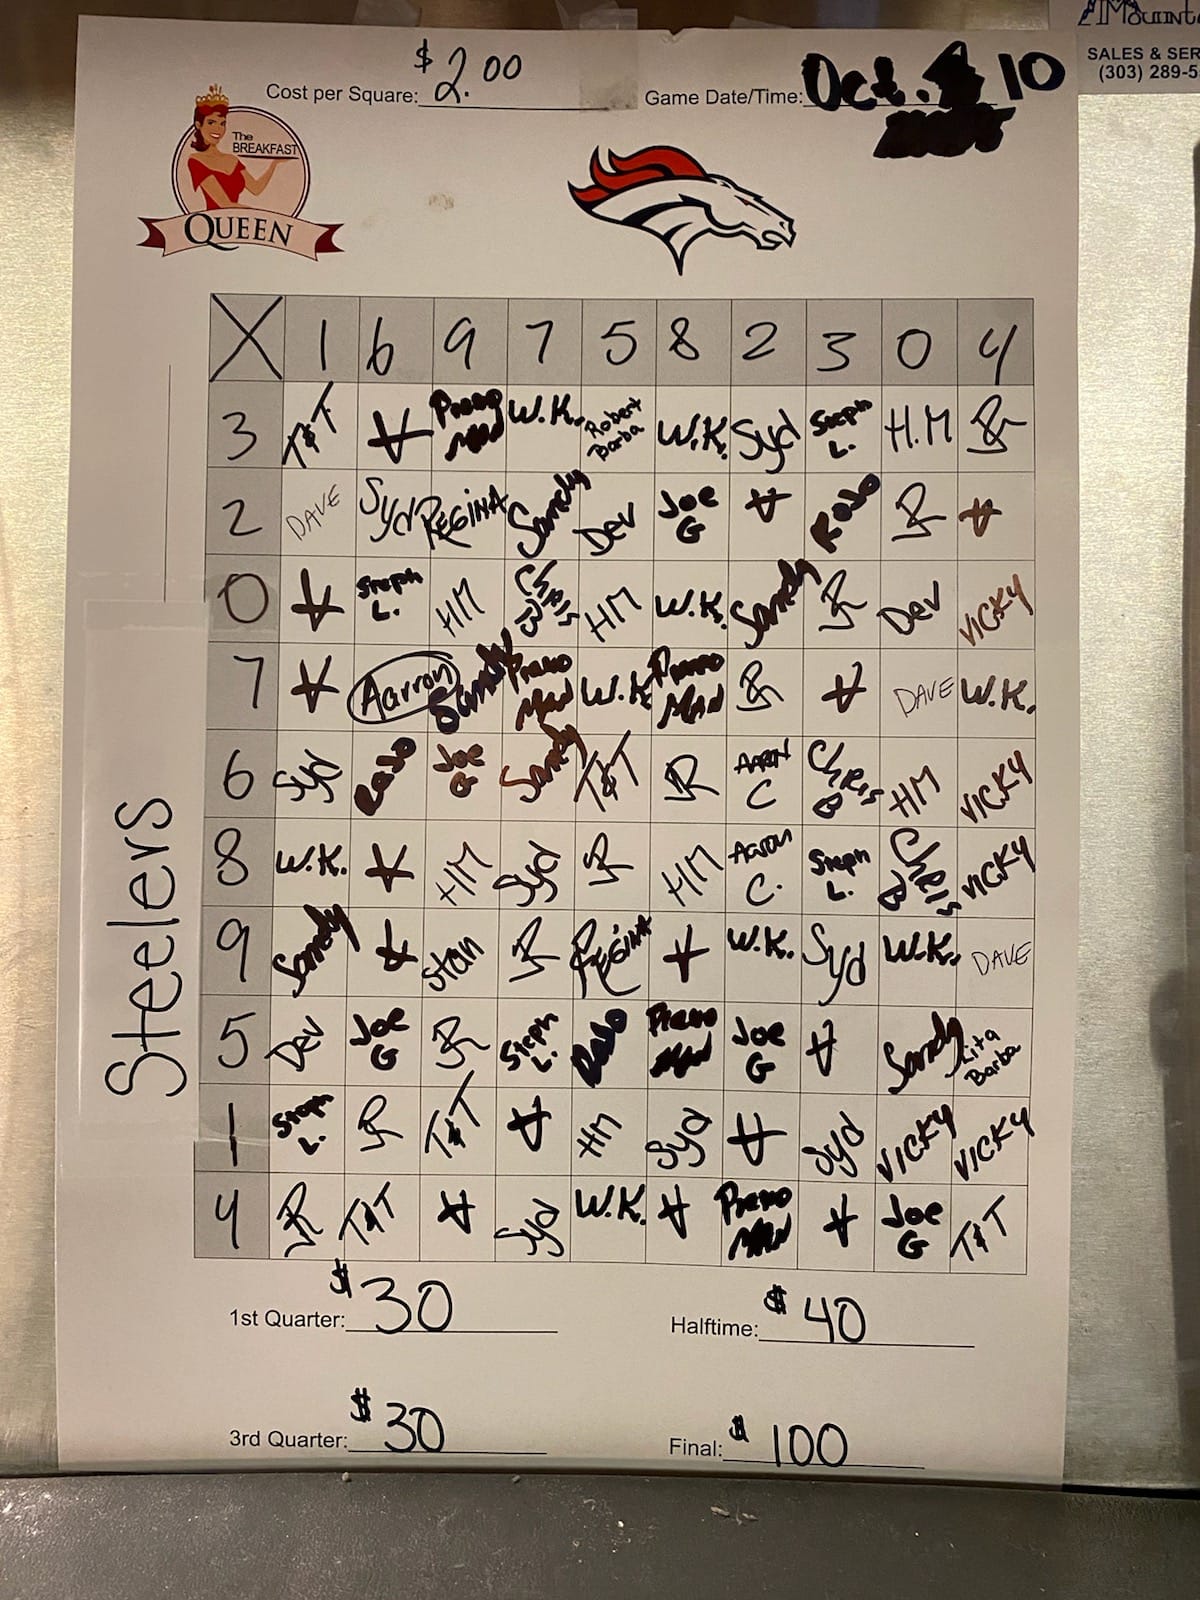 MOUNT
SALES & SER
(303) 289-5
Cost per Square: $2.00
Game Date/Time: Oct. 10
The
BREAKFAST
QUEEN
Steelers
X 1 6 9 7 5 8 2 3 0 4
3 T&T W.K. Robert Barba W.K. Syd Steph L. H.M
2 DAVE Syd REGINA Sandy Dev Joe G JR
0 Steph L. HM Chris B HM W.K. Sandy JR Dev VICKY
7 Aarron Sandy W.K. JR DAVE W.K.
6 Syd Joe G Sandy T&T JR AARN C Chris B HM VICKY
8 W.K. HM Syd JR HM Aaron C. Steph L. Chris B VICKY
9 Sandy Stan JR REGINA W.K. Syd W.K. DAVE
5 Dev Joe G JR Steph L. Joe G Sandy Lita Barba
1 Steph L. JR T&T HM Syd Syd VICKY VICKY
4 JR T&T Syd W.K. Joe G T&T
1st Quarter: $30
Halftime: $40
3rd Quarter: $30
Final: $100